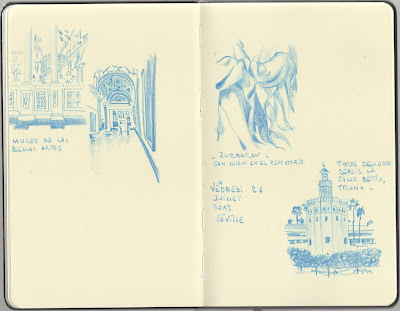 MUSEO DE LAS
BELLAS ARTES
ZURBARAN.
SAN HUGO EN EL REFECTORIO
VENDREDI 26
JUILLET
2013
SÉVILLE
TORRE DEL ORO
DEPUIS LA
CALLE BETIS,
TRIANA.